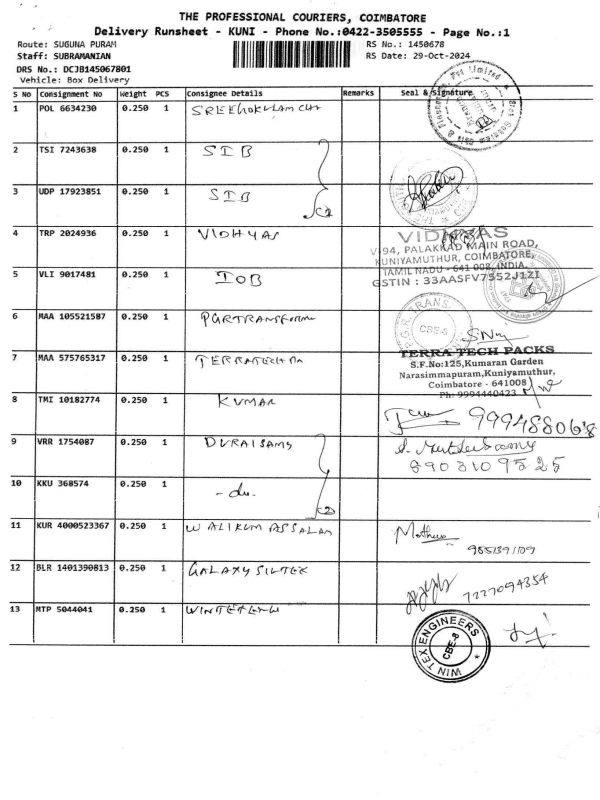 THE PROFESSIONAL COURIERS, COIMBATORE
Delivery Runsheet - KUNI - Phone No.:0422-3505555 - Page No.:1
Route: SUGUNA PURAM RS No.: 1450678
Staff: SUBRAMANIAN RS Date: 29-Oct-2024
DRS No.: DCJB145067801
Vehicle: Box Delivery
S No Consignment No Weight PCS Consignee Details Remarks Seal & Signature
1 POL 6634230 0.250 1 SREEGOKULAM CHI
2 TSI 7243638 0.250 1 SIB
3 UDP 17923851 0.250 1 SIB
4 TRP 2024936 0.250 1 VIDHYAS
VIDHYAS
V-94, PALAKKAD MAIN ROAD,
KUNIYAMUTHUR, COIMBATORE,
TAMIL NADU - 641 008, INDIA.
GSTIN : 33AASFV7552J1ZI
5 VLI 9017481 0.250 1 IOB
6 MAA 105521587 0.250 1 PGRTRANSFORM
P.G.R. TRANS
CBE-8
7 MAA 575765317 0.250 1 TERRATECH PA
TERRA TECH PACKS
S.F.No:125,Kumaran Garden
Narasimmapuram,Kuniyamuthur,
Coimbatore - 641008
Ph: 9994440423
8 TMI 10182774 0.250 1 KUMAR
9994880618
9 VRR 1754087 0.250 1 DURAISAMY
8903109525
10 KKU 368574 0.250 1 - do -
11 KUR 4000523367 0.250 1 WALIKUM ASSALAM
9851391109
12 BLR 1401390813 0.250 1 GALAXY SILTEK
7227094354
13 MTP 5044041 0.250 1 WINTEXENG
WIN TEX ENGINEERS
CBE-8